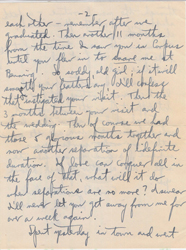 -2-
each other - water after we
graduated. Then another 11 months
from the time I saw you in
until you flew in to me at
. So worldly, old girl, it will
your feathers and I'll confess
that instigated your visit. Then the
3 months between your visit and
the wedding. Then of course we had
those 5 glorious months together and
now another separation of indefinite
duration. If love can conquer all in
the face of that, what will it do
when separations are no more? Answer:
I'll never let you get away from me for
over a week again.
Spent yesterday in town and went